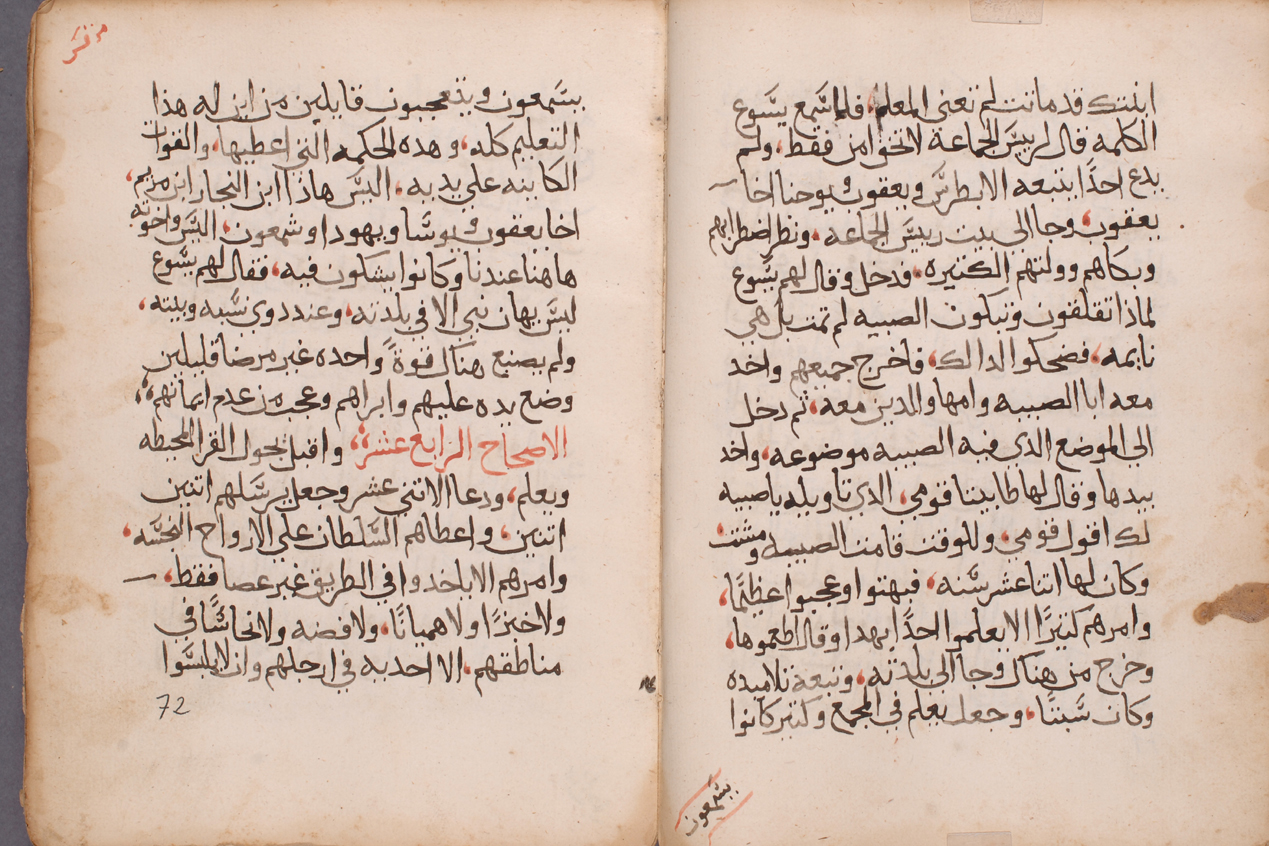 ابنتك قد ماتت لم تعني المعلم، فلما سمع يسوع
الكلمة قال لرييس الجماعة لا تخف امن فقط، ولم
يدع احدًا يتبعه الا بطرس ويعقوب ويوحنا اخا
يعقوب، وجا الى بيت رييس الجماعه، ونظر اضطرابهم
وبكاهم وولتهم الكتيره، فدخل وقال لهم يسوع
لماذا تقلقون وتبكون الصبيه لم تمت بل هي
نايمه، فضحكوا لدالك، فاخرج جميعهم واخد
معه ابا الصبيه وامها والدين معه، ثم دخل
الى الموضع الدي فيه الصبيه موضوعه، واخد
بيدها وقال لها طابيتا قومي، الدي تاويله يا صبيه
لك اقول قومي، وللوقت قامت الصبيه ومشت،
وكان لها اتنا عشر سنه، فبهتوا وعجبوا عظيمًا،
وامرهم كتيرًا الا يعلموا احدًا بهدا وقال اطعموها،
وخرج من هناك وجا الى بلدته، وتبعه تلاميده
وكان سبتًا، وجعل يعلم في المجمع وكتير كانوا
يسمعون
يسمعون ويتعجبون قايلين من اين له هذا
التعليم كله، وهده الحكمه التي اعطيها، والقوات
الكاينه على يديه، اليس هاذا ابن النجار ابن مريم،
اخا يعقوب ويوسا ويهودا وشمعون، اليس واخوته
هاهنا عندنا وكانوا يشكون فيه، فقال لهم يسوع
ليس يهان نبي الا في بلدته، وعند دوي نسبه وبيته،
ولم يصنع هناك قوةً واحده غير مرضا قليلين
وضع يده عليهم وابراهم وعجب من عدم ايمانهم،
الاصحاح الرابع عشر، واقبل يجول القرا المحيطه
ويعلم، ودعا الاتني عشر وجعل يرسلهم اتنين
اتنين، واعطاهم السلطان على الارواح النجسه،
وامرهم الا ياخدوا في الطريق غير عصا فقط،
ولا خبزًا ولا هميانًا، ولا فضه ولا نحاسًا في
مناطقهم، الا احديه في ارجلهم وان لا يلبسوا
72